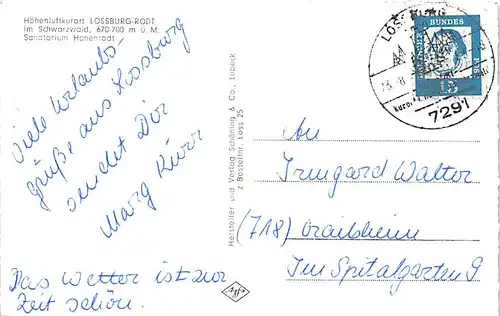 Höhenluftkurort LOSSBURG-RODT
im Schwarzwald, 670-700 m ü. M.
Sanatorium Hohenrodt
Viele Urlaubs-
grüße aus Lossburg
sendet Dir
Marg Kürr
Das Wetter ist zur
Zeit schön.
Hersteller und Verlag Schöning & Co., Lübeck
z Bestellnr. Loss 25
LOSSBURG
7291
BUNDES
15
An
Irmgard Walter
(718) Crailsheim
Im Spitalgarten 9